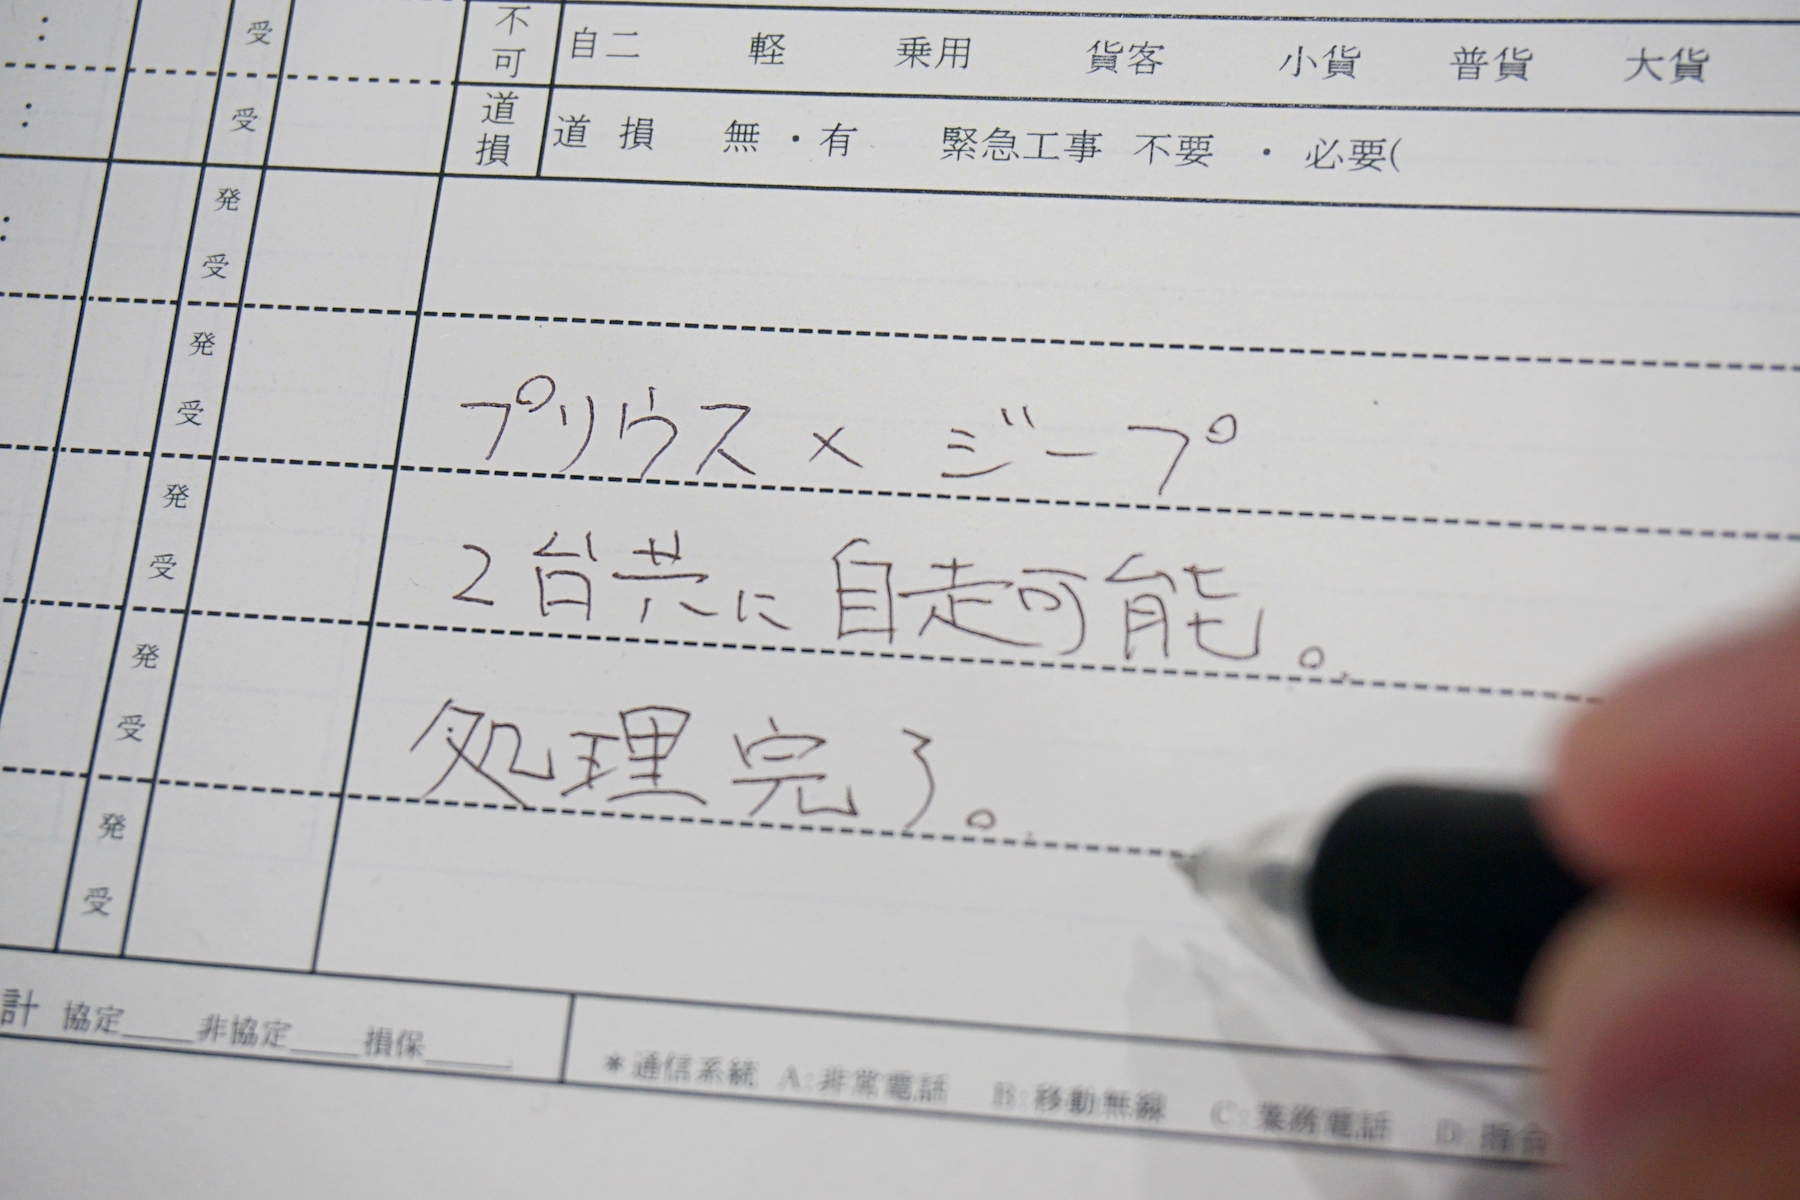 ： 受 不可 自二 軽 乗用 貨客 小貨 普貨 大貨
： 受 道損 道 損 無 ・ 有 緊急工事 不要 ・ 必要(
： 発
受
発
受 プリウス × ジープ
発
受 2台共に自走可能。
発
受 処理完了。
発
受
計 協定____非協定____損保_____
＊通信系統 A:非常電話 B:移動無線 C:業務電話 D:指令